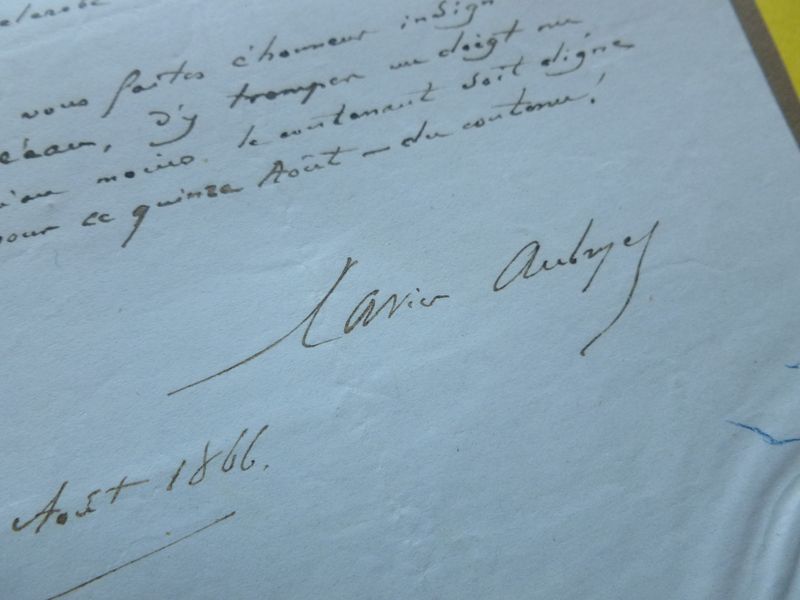 vous faites l'honneur insign
d'y tromper un doigt ou
moins le contenant soit digne
pour ce quinze Août — du contenu!
Xavier Aubryet
Août 1866.